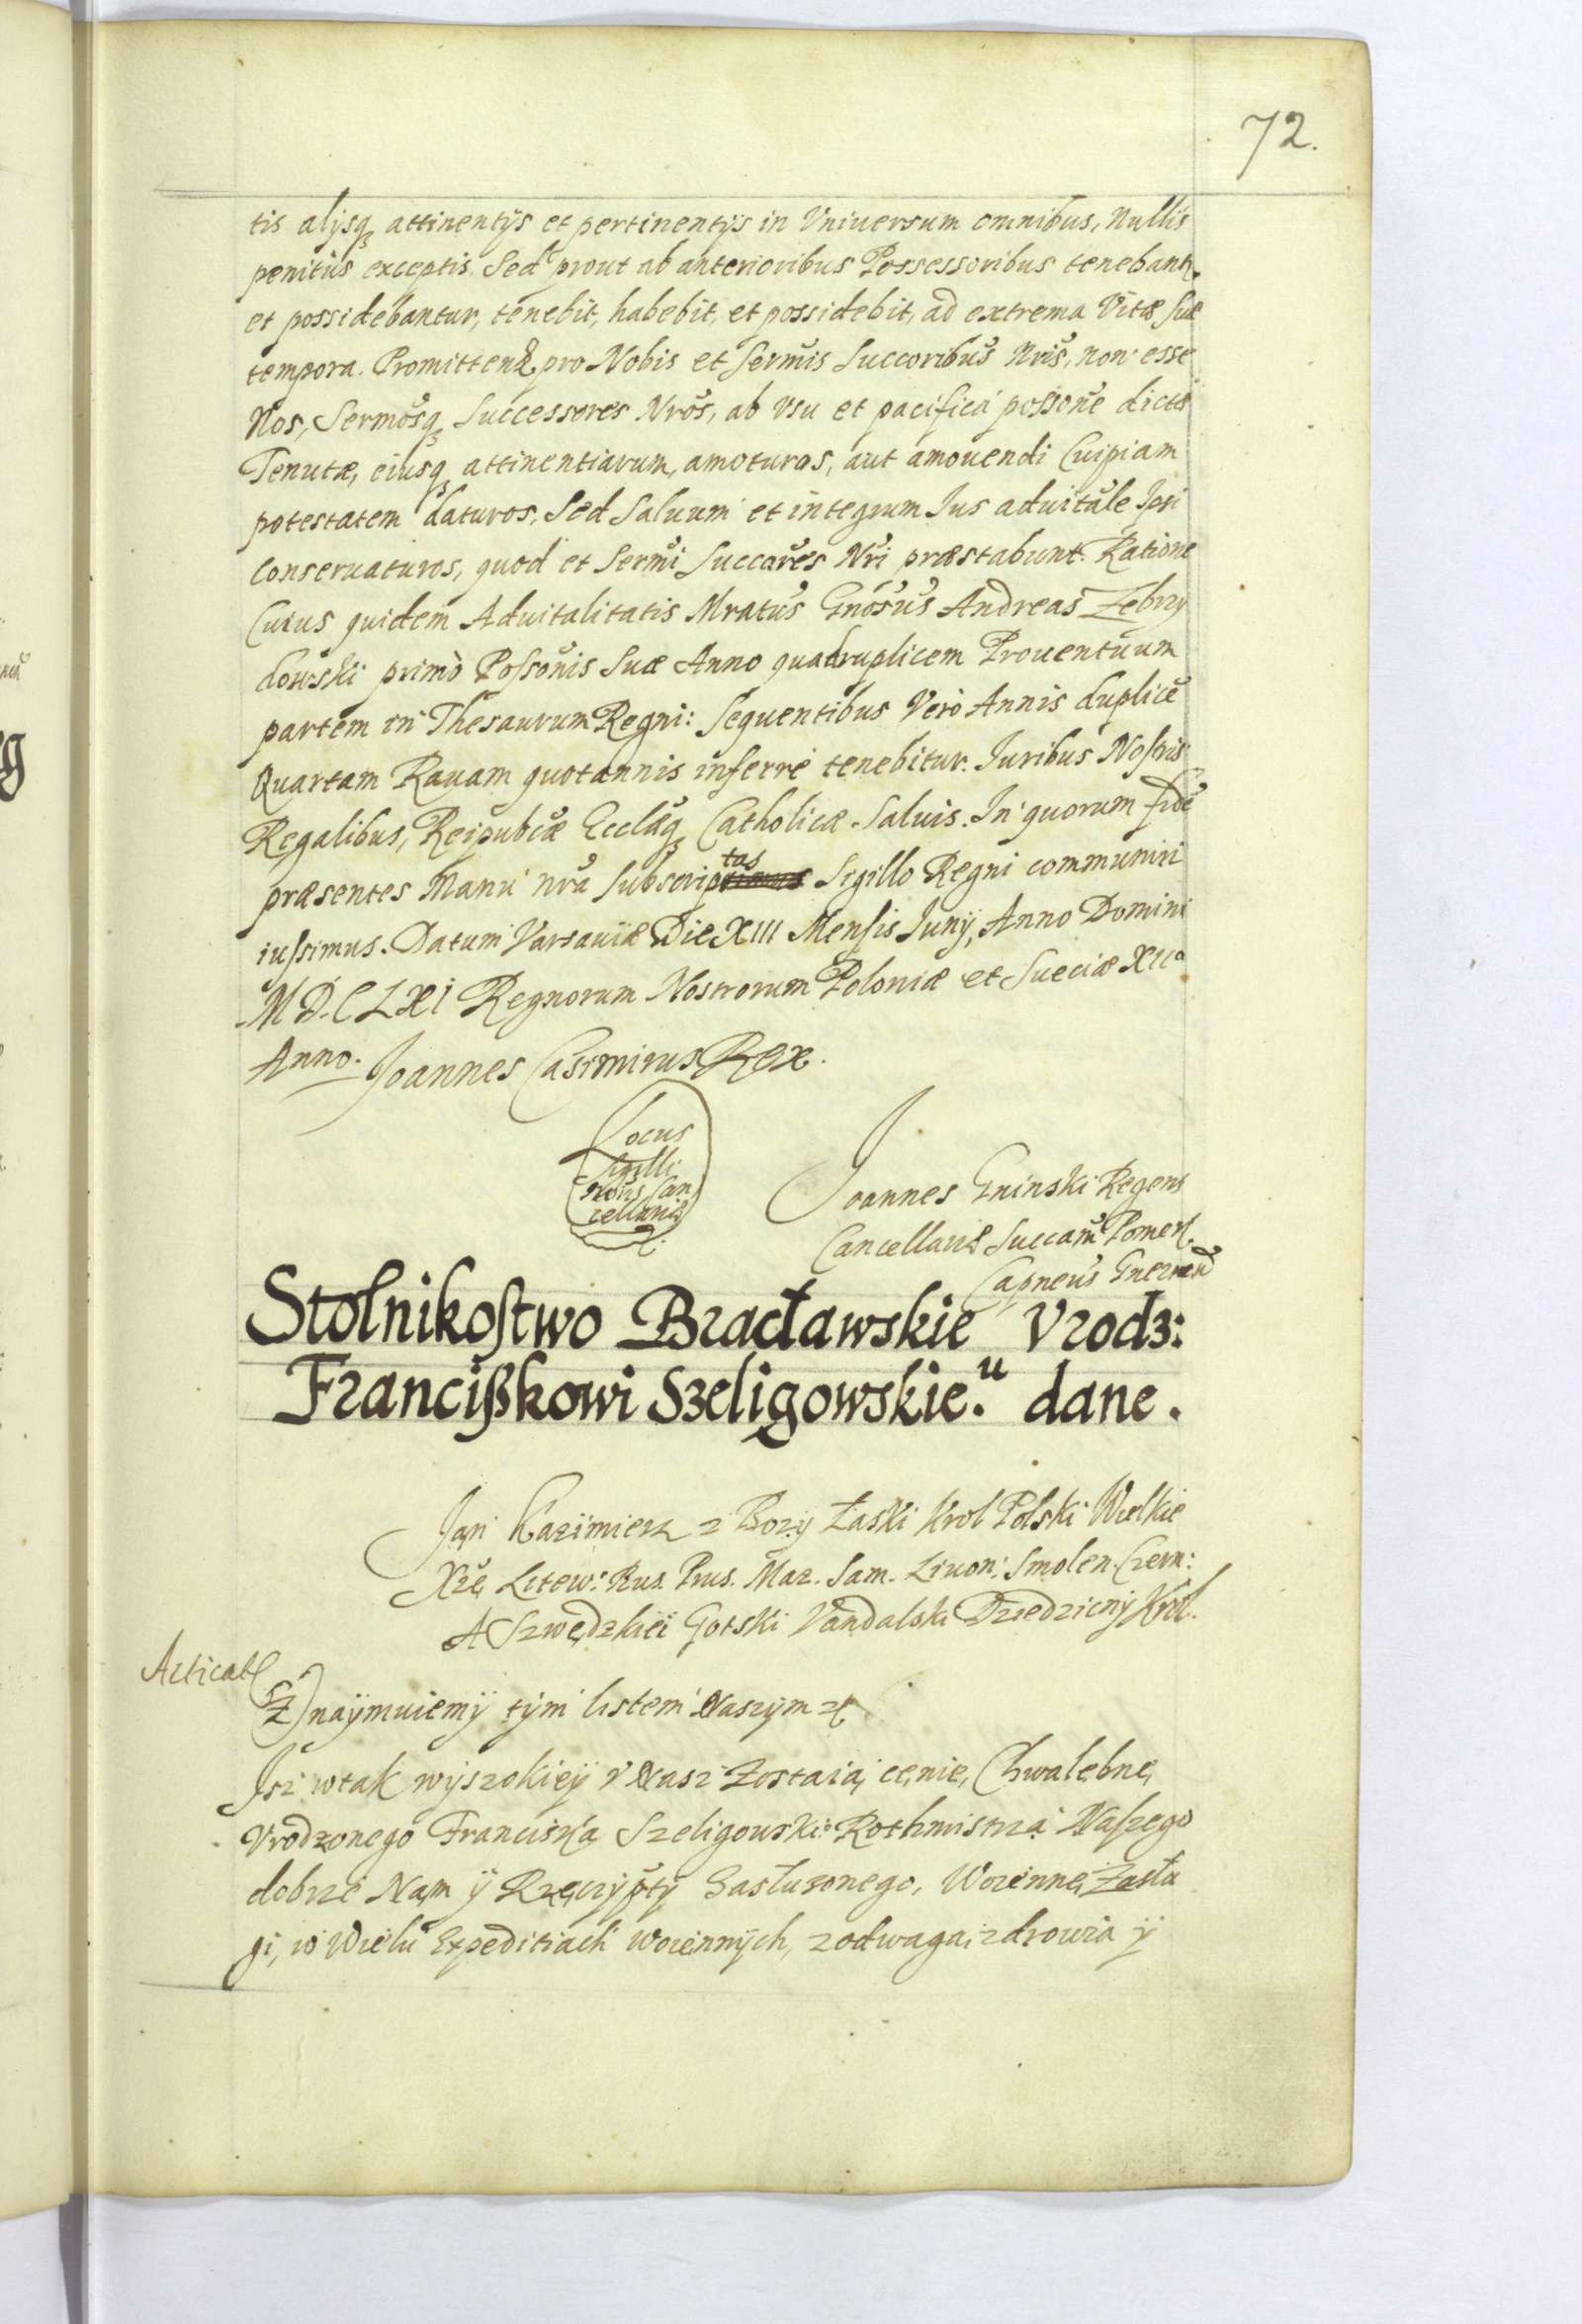 72.
tis alijsq attinentijs et pertinentijs in Vniuersum omnibus, Nullis
penitus exceptis. Sed prout ab anterioribus Possessoribus tenebant.
et possidebantur, tenebit, habebit, et possidebit, ad extrema Vitæ suæ
tempora. Promitten pro Nobis et Sermis Succoribus Nris, non esse
Nos, Sermosq Successores Nros, ab vsu et pacifica possone dictæ
Tenutæ, eiusq attinentiarum, amoturos, aut amouendi Cuipiam
potestatem daturos, Sed Saluum et integrum Ius aduitale Ipsi
Conseruaturos, quod et Sermi Succores Nri præstabunt. Ratione
Cuius quidem Aduitalitatis Mratus Gnosus Andreas Zebrzy
dowski primo Possonis suæ Anno quadruplicem Prouentuum
partem in Thesaurum Regni: Sequentibus Vero Annis duplice
Quartam Rauam quotannis inferre tenebitur. Iuribus Nostris
Regalibus, Reipubcæ Ecclæq Catholicæ Saluis. In quorum fide
præsentes Manu nra subscriptas Sigillo Regni communiri
iussimus. Datum Varsauiæ Die XIII Mensis Iunij, Anno Domini
MDCLXI Regnorum Nostrorum Poloniæ et Sueciæ XIIo
Anno. Joannes Casimirus Rex.
Locus
Sigilli
Can
cellariæ
Joannes Gninski Regens
Cancellariæ Succam Pomer
Capneus Gnezn
Stolnikostwo Bracławskie Vrodz:
Franciszkowi Szeligowskie.u dane.
Jan Kazimierz z Bozy Łaski Krol Polski Wielkie
Xże Litew: Rus. Prus. Maz. Sam. Liuon: Smolen. Czern:
A Szwędzkii Gotski Vandalski Dziedziczny Krol.
Acticat
Oznaÿmuiemÿ tÿm listem Naszÿm
Jsz wtak wÿszokieÿ v Nasz zostaią cęnie, Chwalebne,
Vrodzonego Franciszka Szeligowskio Rothmistrza Naszego
dobrze Nam ÿ Rzęczÿptÿ Zasłuzonego, Woienne, Zasłu
gi, w Wielu Expeditiach woiennÿch, z odwagą zdrowia ÿ